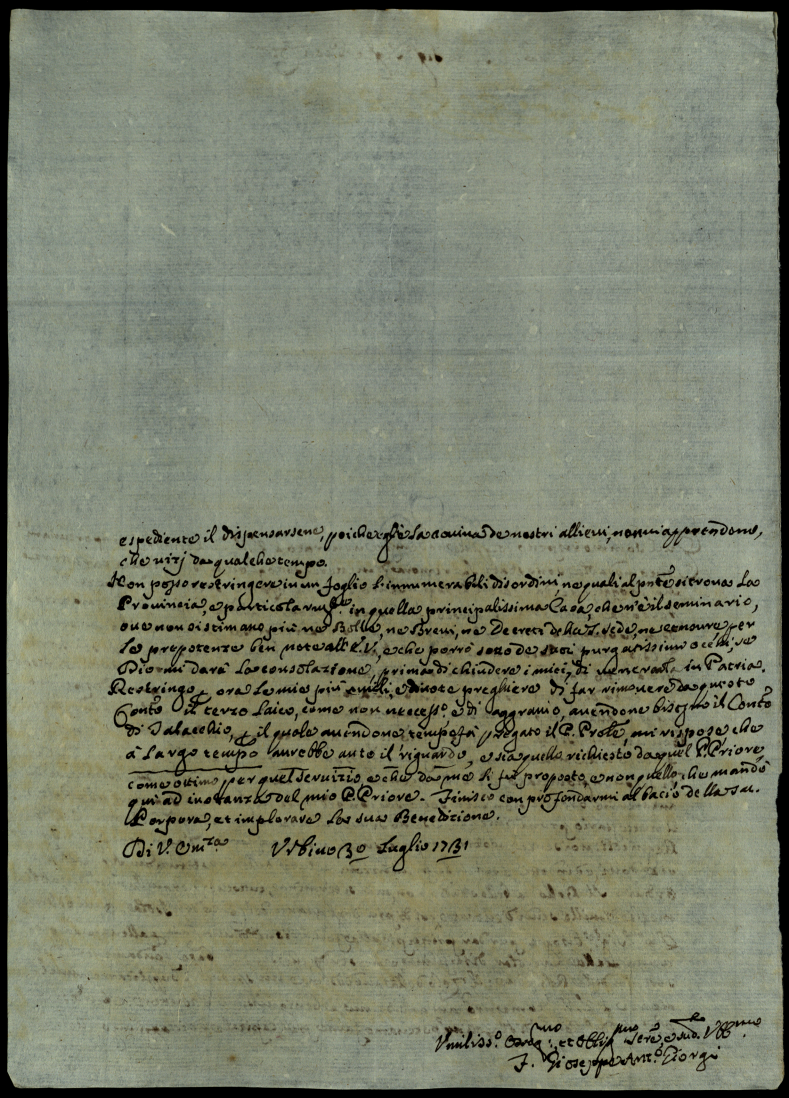 espediente il dispensarsene, poiche egli è la rovina de nostri allievi, non vi apprendono,
che vizj da qualche tempo.
Non posso restringere in un foglio l'innumerabili disordini, ne quali al pnte si trova la
Provincia, e particolarmte in quella principalissima Casa, che n'è il seminario,
ove non si stimano più ne Bolle, ne Brevi, ne Decreti della S. Sede, ne se noure per
le prepotenze ben note all'E.V. e che porrò sotto de suoi purgatissimi occhi, se
Dio mi darà la consolazione, prima di chiudere i miei, di venerarla in Patria.
Restringo ora le mie più umili, e divote preghiere di far rimovere da questo
Convto il terzo Laico, come non necesso, e di aggravio, avendone bisogno il Convto
di Talacchio, il quale avendone tempo fà pregato il P. Prole, mi rispose che
à largo tempo avrebbe auto il riguardo, e sia quello richiesto da quel P. Priore,
come ottimo per quel servizio, e che da me li fu proposto, e non quello, che mandò
qui ad instanza del mio P. Priore. Finisco con profondarmi al bacio della sac.
Porpora, et implorare la sua Benedizione.
Di V. Emza Urbino 30 Luglio 1731
Umiliss.o et Obblig.mo
F. Gioseppe Ant.o Giorgi